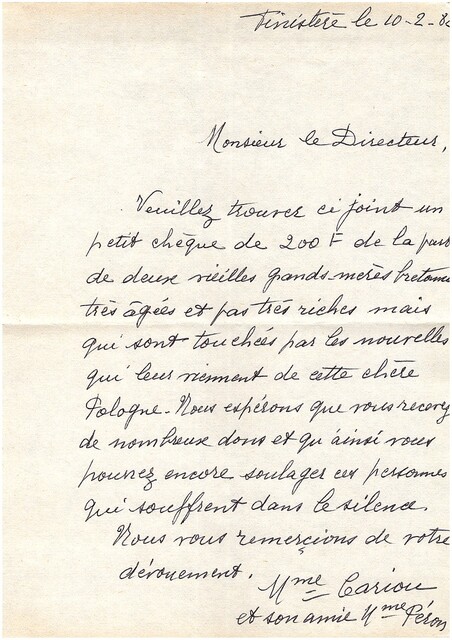 Finistère le 10-2-8
Monsieur le Directeur,
Veuillez trouver ci joint un
petit chèque de 200 F de la part
de deux vieilles grands-mères bretonnes
très âgées et pas très riches mais
qui sont touchées par les nouvelles
qui leur viennent de cette chère
Pologne. Nous espérons que vous recevez
de nombreux dons et qu'ainsi vous
pourrez encore soulager ces personnes
qui souffrent dans le silence.
Nous vous remerçions de votre
dévouement.
Mme Cariou
et son amie Mme Péron